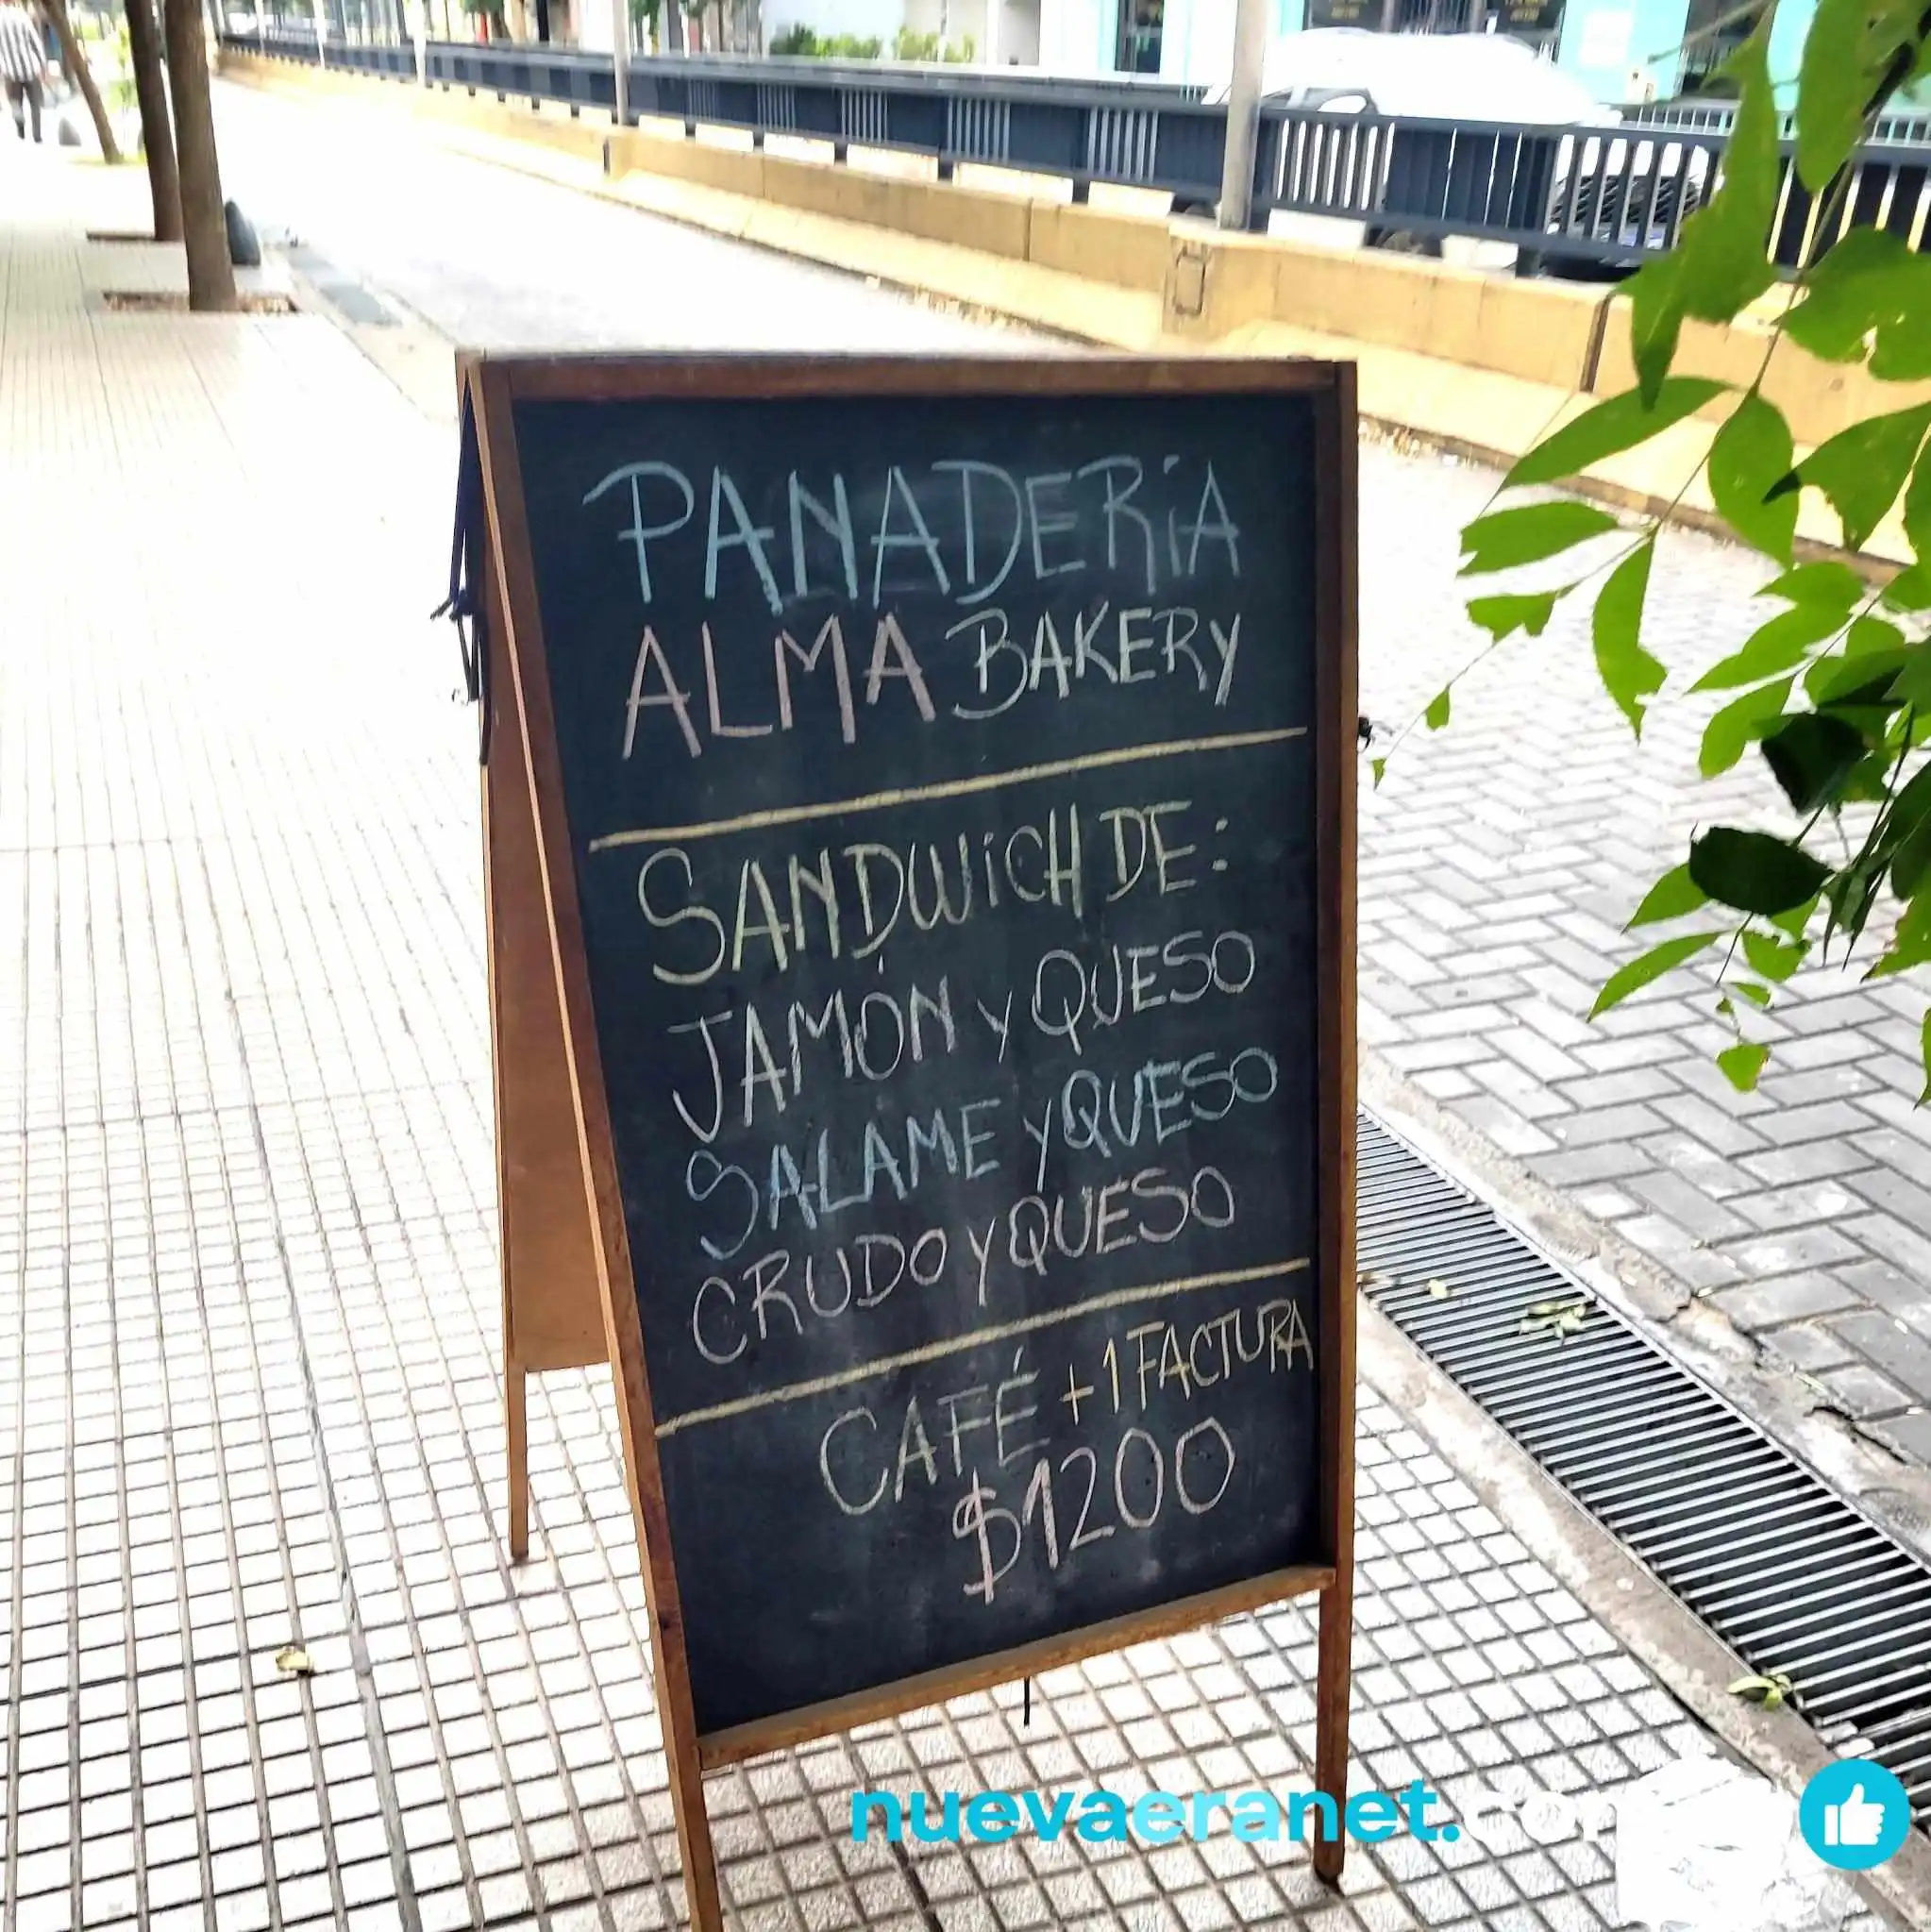 PANADERíA
ALMA BAKERY
SANDWiCH DE:
JAMÓN Y QUESO
SALAME Y QUESO
CRUDO Y QUESO
CAFÉ + 1 FACTURA
$1200
nuevaeranet.co